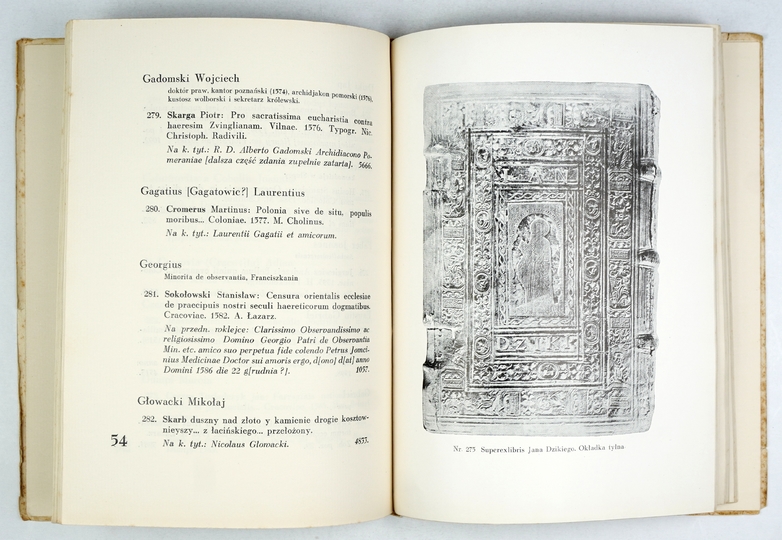 Gadomski Wojciech
doktór praw, kantor poznański (1574), archidjakon pomorski (1576),
kustosz wolborski i sekretarz królewski.
279. Skarga Piotr: Pro sacratissima eucharistia contra
haeresim Zvinglianam. Vilnae. 1576. Typogr. Nic.
Christoph. Radivili.
Na k. tyt.: R. D. Alberto Gadomski Archidiacono Po-
meraniae [dalsza część zdania zupełnie zatarta]. 5666.
Gagatius [Gagatowic?] Laurentius
280. Cromerus Martinus: Polonia sive de situ, populis
moribus... Coloniae. 1577. M. Cholinus.
Na k. tyt.: Laurentii Gagatii et amicorum.
Georgius
Minorita de observantia, Franciszkanin
281. Sokołowski Stanisław: Censura orientalis ecclesiae
de praecipuis nostri seculi haereticorum dogmatibus.
Cracoviae. 1582. A. Łazarz.
Na przedn. wklejce: Clarissimo Observandissimo ac
religiosissimo Domino Georgio Patri de Observantia
Min. etc. amico suo perpetua fide colendo Petrus Jomci-
nius Medicinae Doctor sui amoris ergo, d[ono] d[at] anno
Domini 1586 die 22 g[rudnia?]. 1057.
Głowacki Mikołaj
282. Skarb duszny nad złoto y kamienie drogie kosztow-
nieyszy... z łacińskiego... przełożony.
Na k. tyt.: Nicolaus Glowacki. 4853.
54
DZYKK
Nr. 275 Superexlibris Jana Dzikiego. Okładka tylna